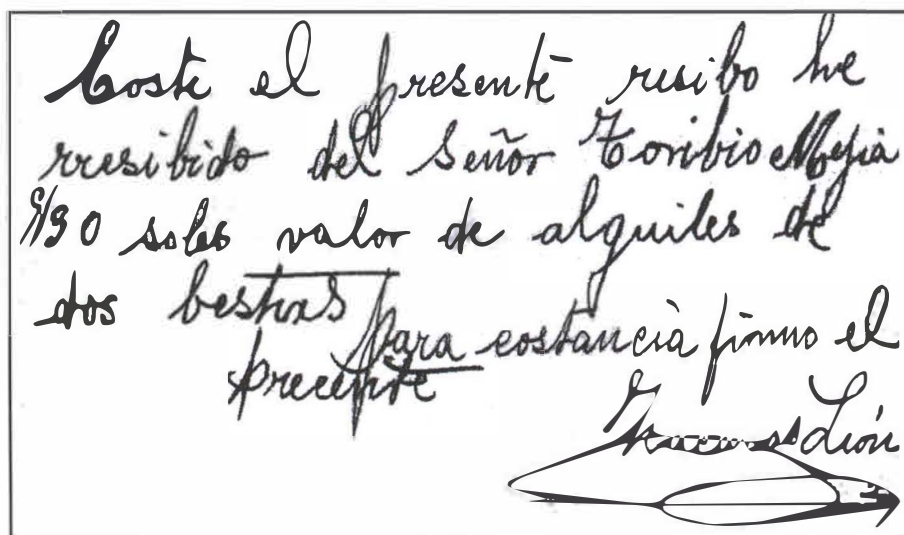 Coste el presente resibo he
rresibido del Señor Toribio Mejia
S/30 soles valor de alguiles de
dos bestias
para costancia firmo el
precente
León